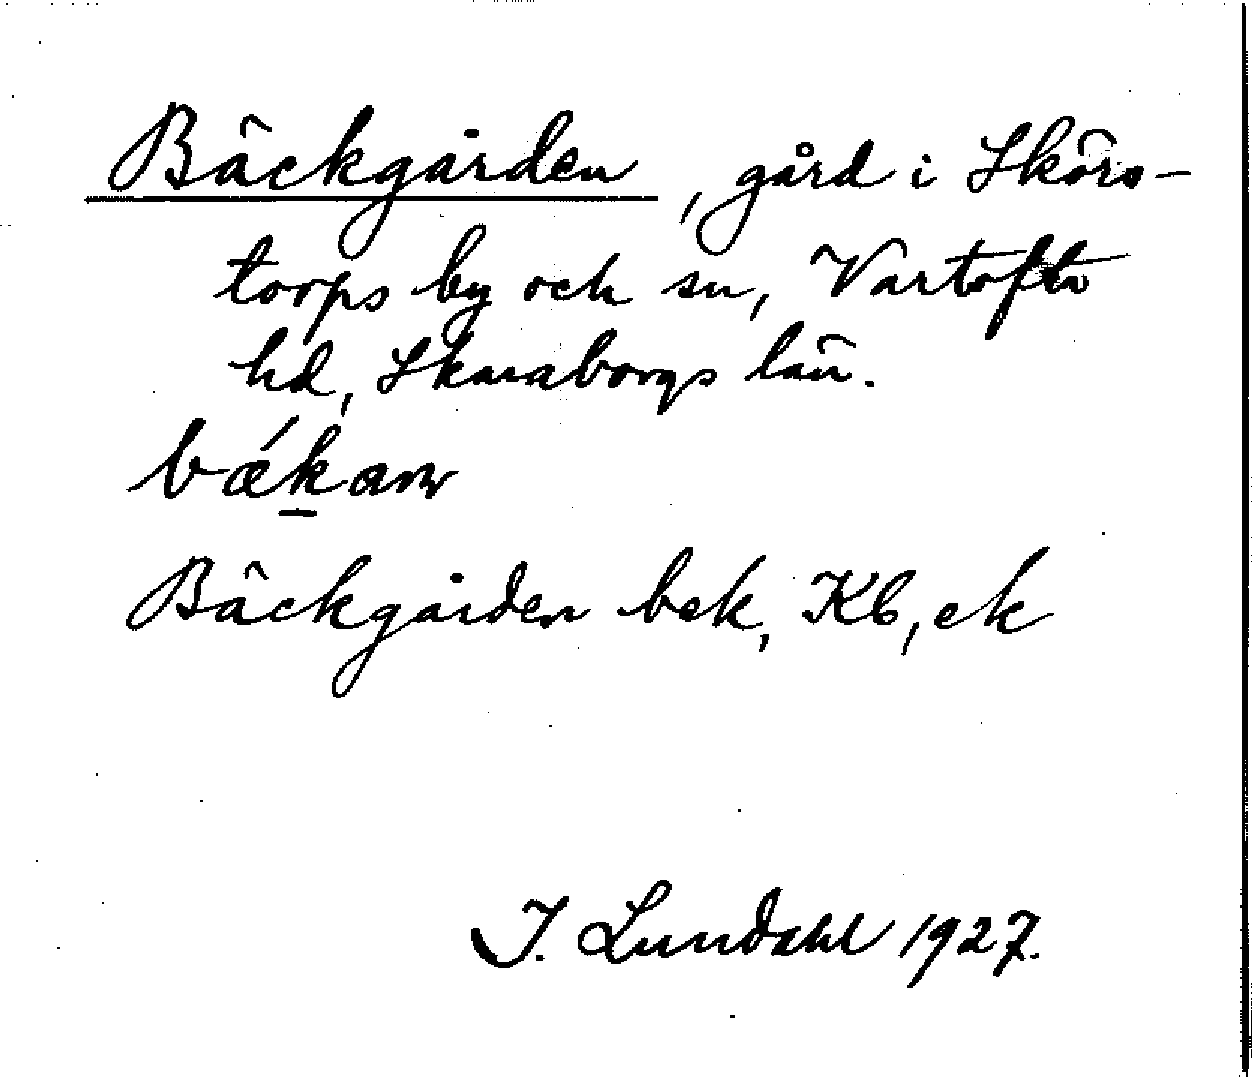 Bäckgården, gård i Skörs-
torps by och sn, Vartofta
hd, Skaraborgs län.
Bäckgården bek, Kb, ek
I. Lundahl 1927.